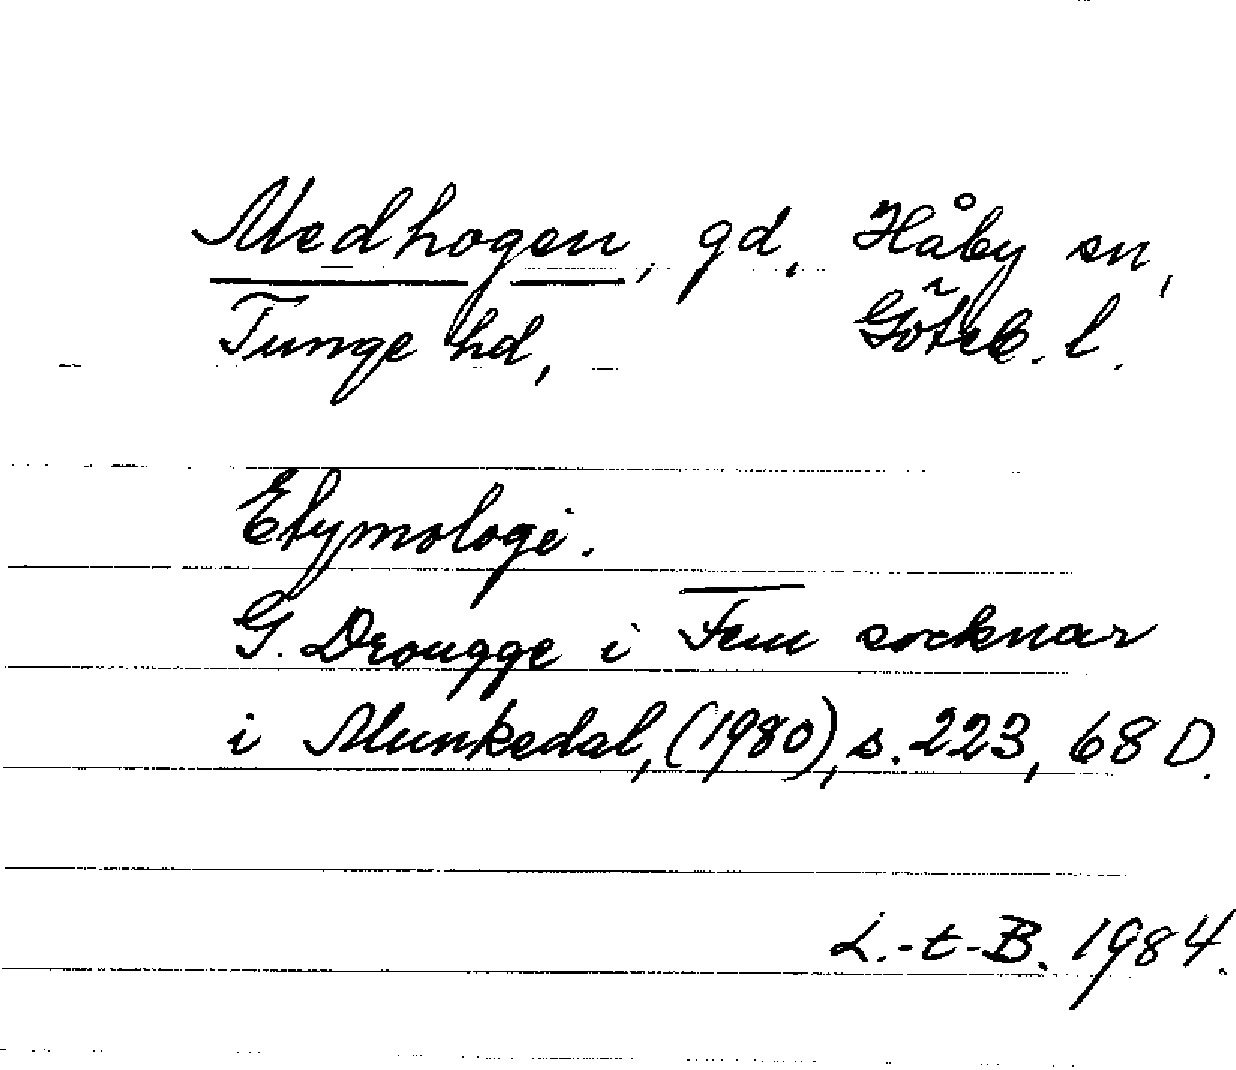 Medhogen, gd, Håby sn,
Tunge hd, Göteb. l.
Etymologi.
G. Drougge i Fem socknar
i Munkedal, (1980), s. 223, 68 D.
L.-t-B. 1984.